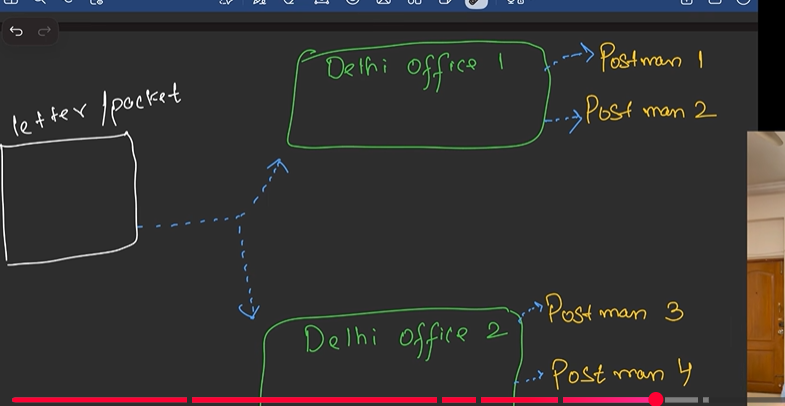 letter / pocket
Delhi office 1
Postman 1
Post man 2
Delhi office 2
Post man 3
Post man 4